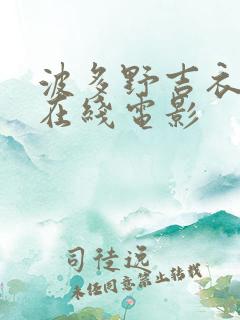 波多野吉衣
在线电影
司徒远
未经同意禁止转载